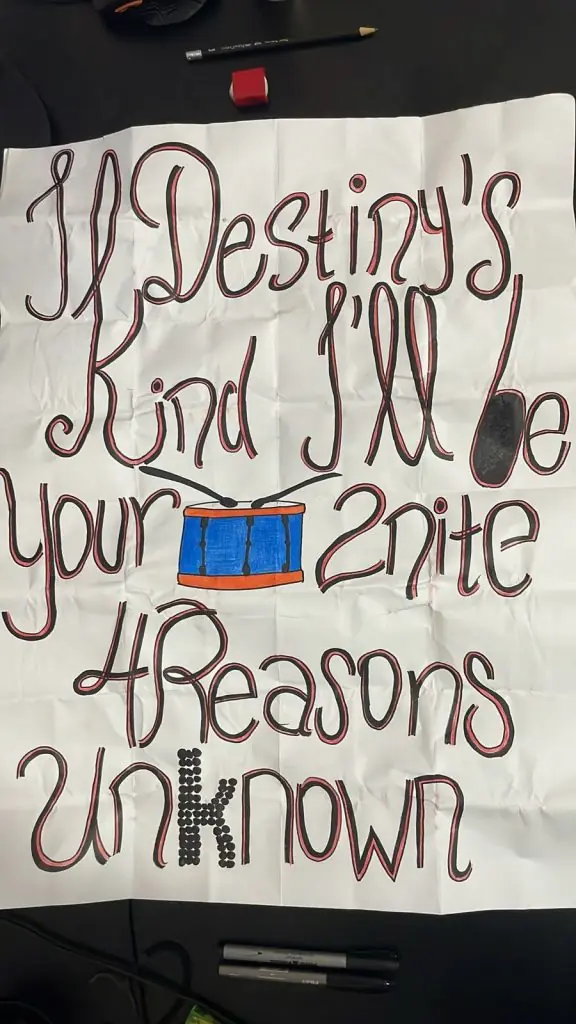 If Destiny's
Kind I'll be
your 2nite
4 Reasons
Unknown